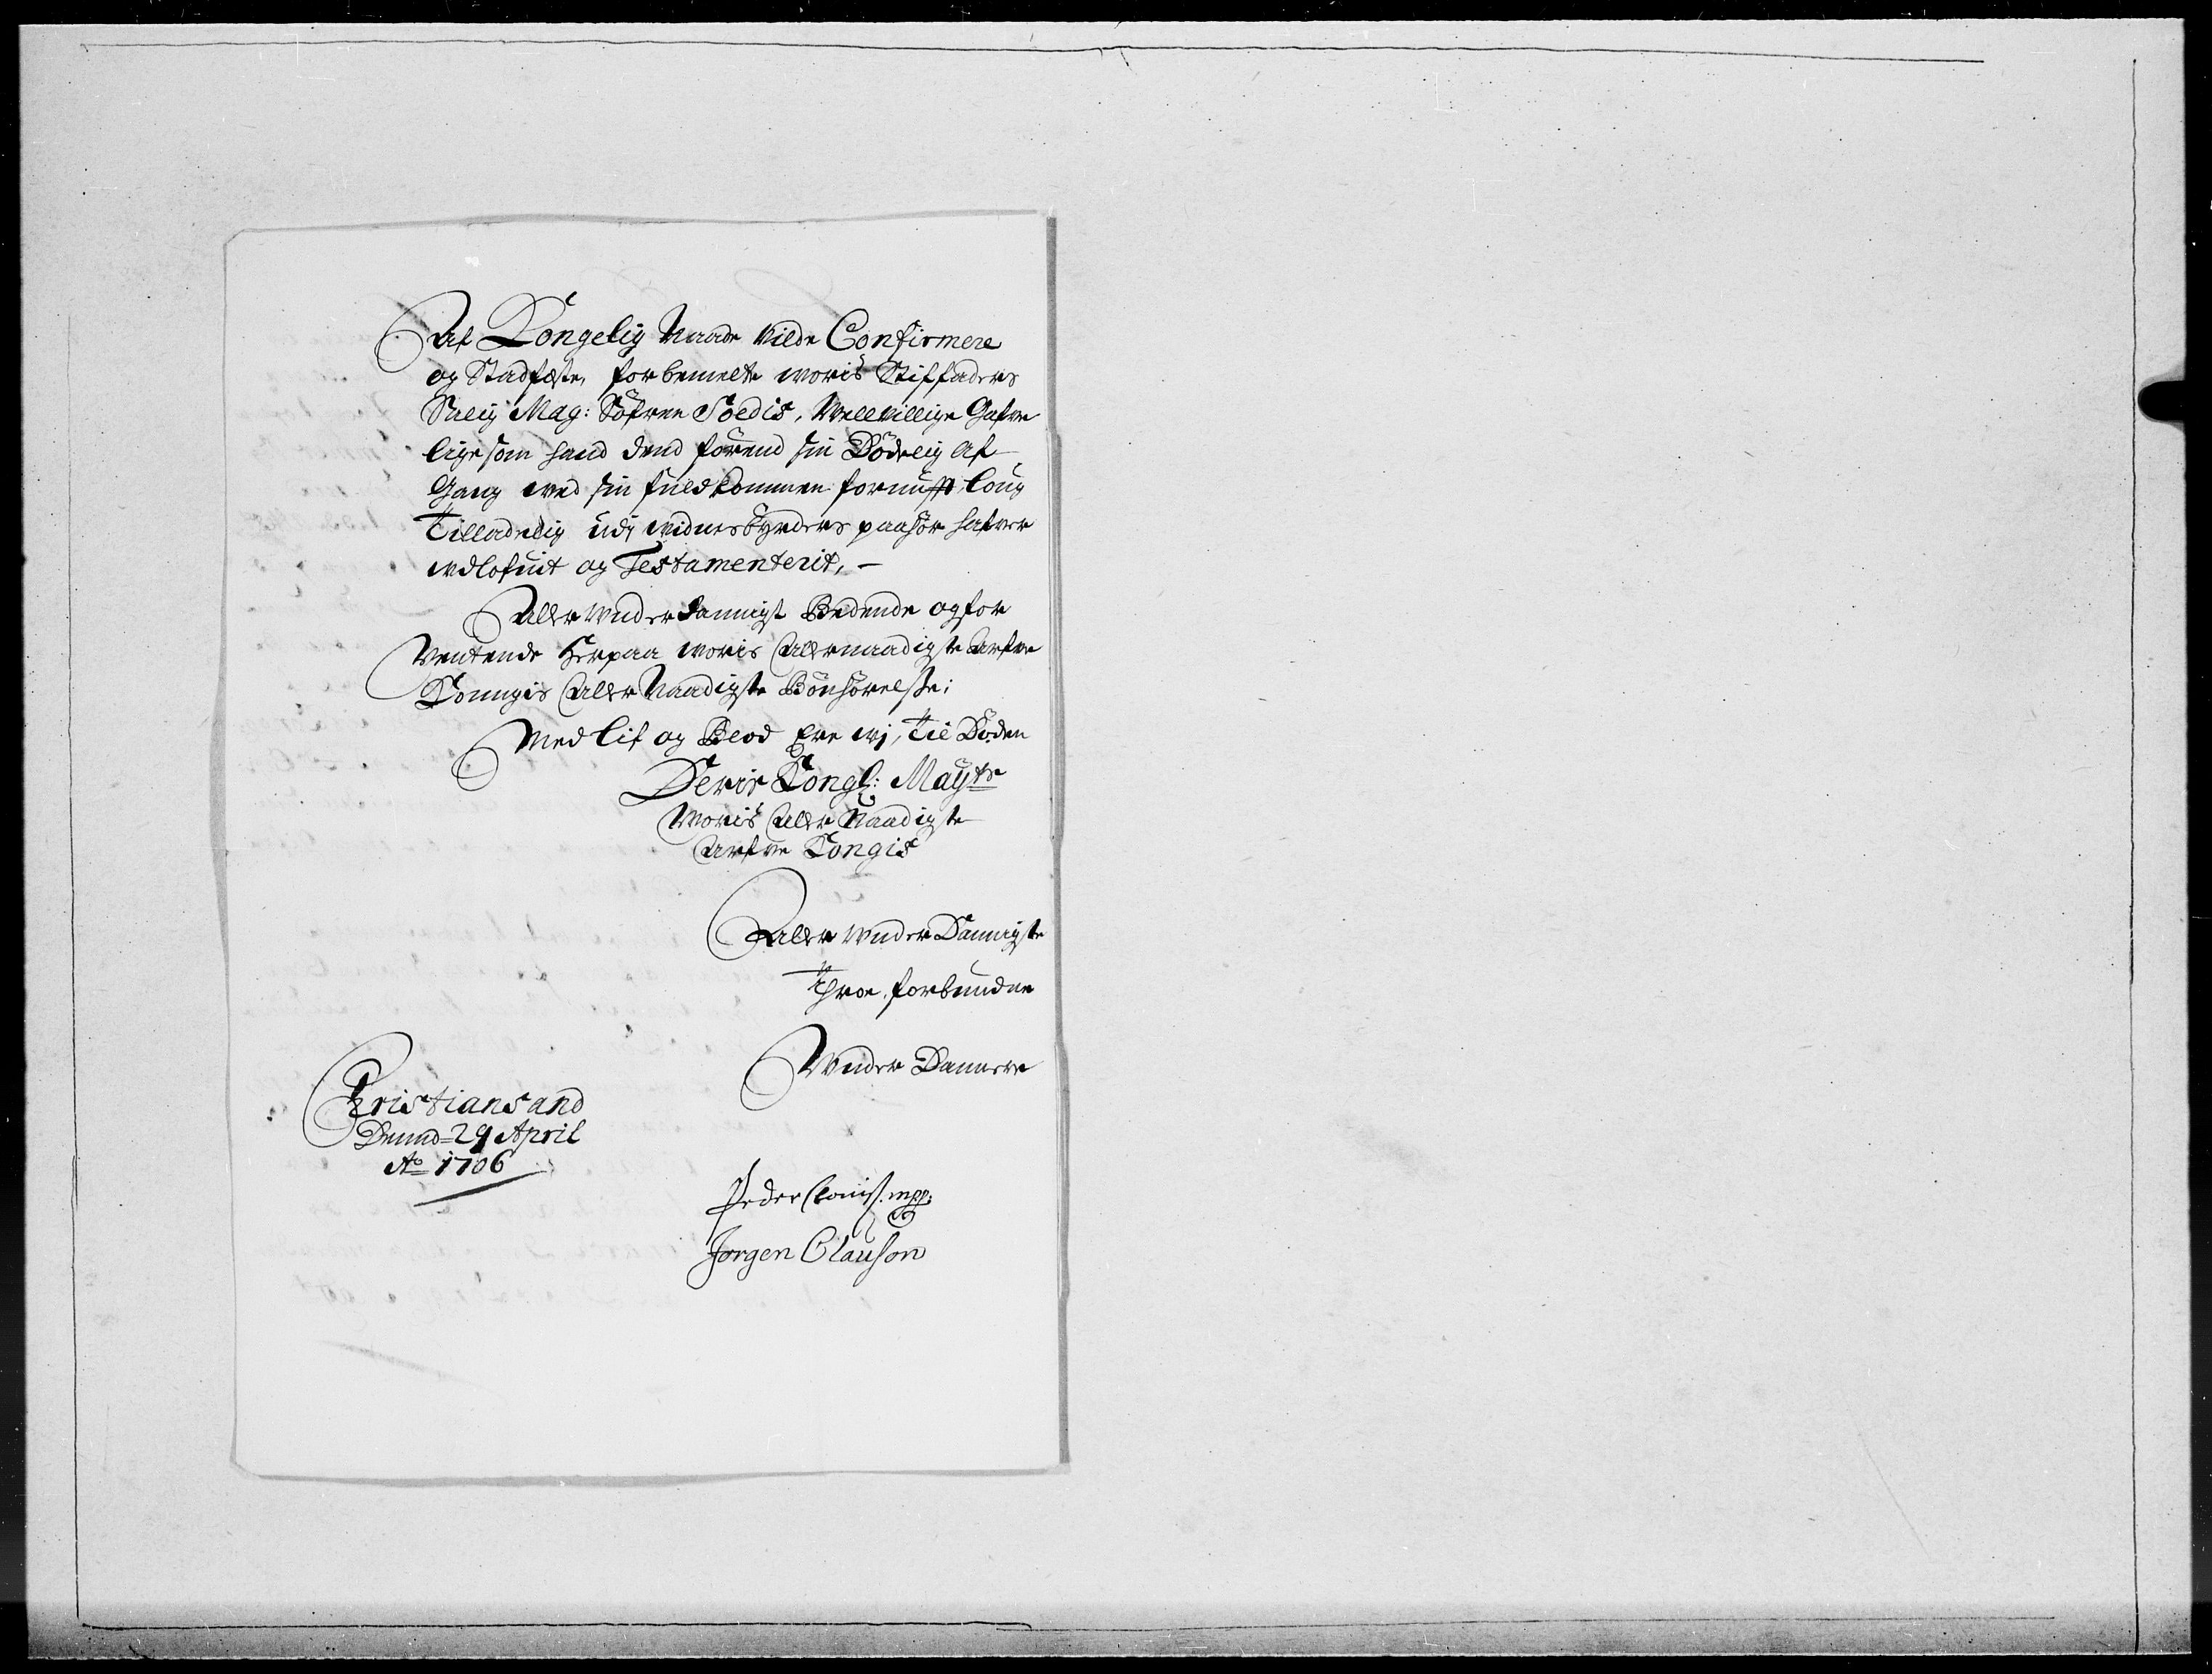 Af Kongelig Naade Vilde Confirmere
og Stadfæste, forbemelte woris Stiffaders
Salig Mag: Söfren Soedis, Wellvillige Gafve
ligesom hand dend förend sin Dödelig Af-
Gang wed sin fuldkommen fornufft, loug
Tilladelig udi widnesbyrders paahör hafver
wdlofuit og Testamenterit, -
Aller wnderdannigst Bedende og for
Ventende herpaa woris Allernaadigste Arfve
Konngis Aller Naadigste Bönhörelsse;
Med lif og Blod Ere wj, Til Döden
Deris Kongl: Mayts
Woris Aller Naadigste
Arfve Kongis
Aller wnder Dannigste
Throe, forbundne
Wnder Dannere
Christiansand
Dend= 29 April
Ao 1706
Peder Clauss. mpp:
Jorgen Clauson